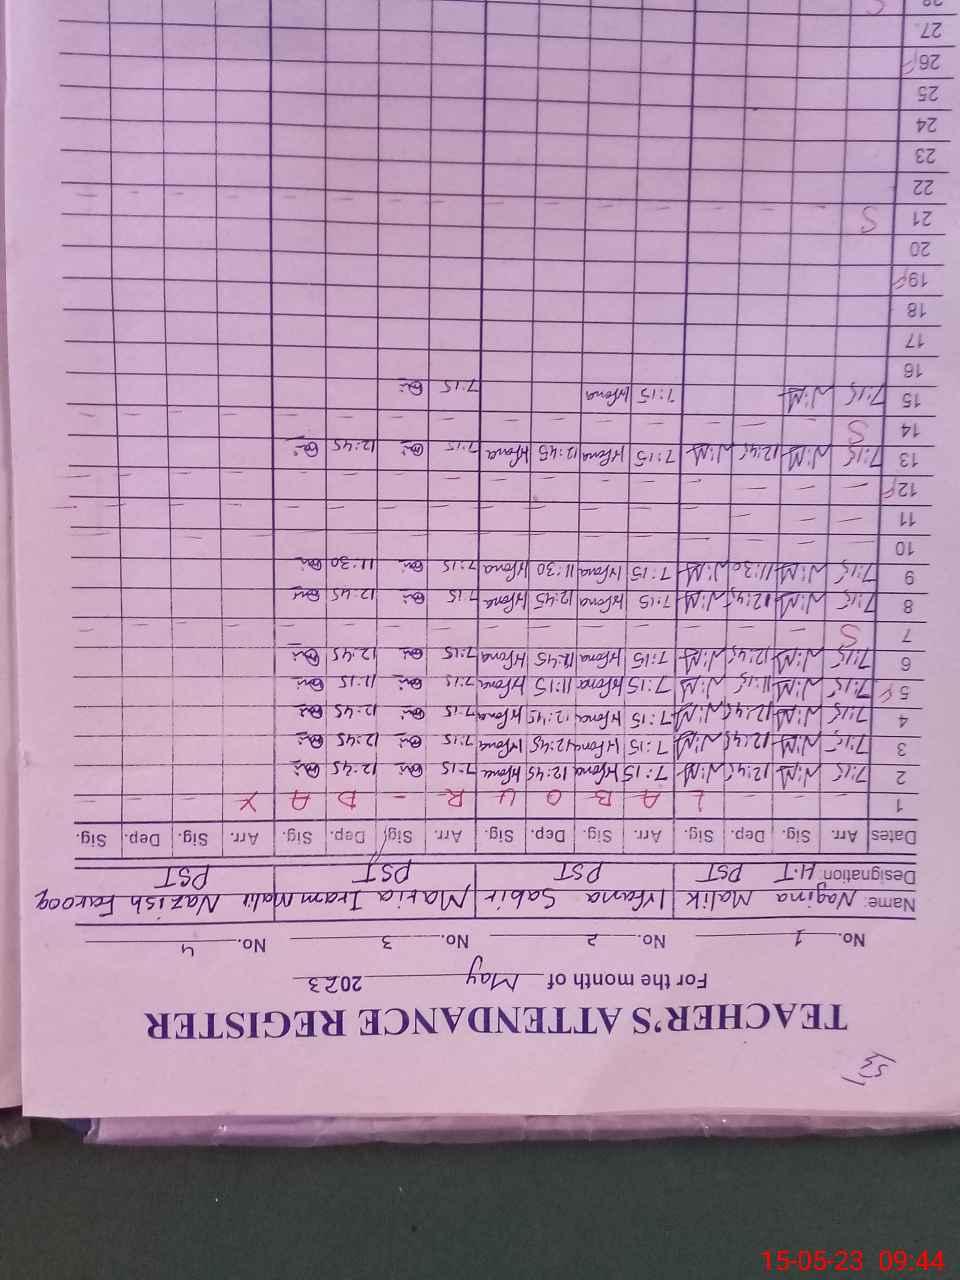 52
TEACHER'S ATTENDANCE REGISTER
For the month of May 2023
No. 1 No. 2 No. 3 No. 4
Name: Nagina Malik Irfana Sabir Maria Iram Malik Nazish Farooq
Designation: H.T PST PST PST PST
Dates Arr. Sig. Dep. Sig. Arr. Sig. Dep. Sig. Arr. Sig. Dep. Sig. Arr. Sig. Dep. Sig.
1 – – – L A B O U R – D A Y – – –
2 7:15 N.M 12:45 N.M 7:15 Irfana 12:45 Irfana 7:15 12:45
3 7:15 N.M 12:45 N.M 7:15 Irfana 12:45 Irfana 7:15 12:45
4 7:15 N.M 12:45 N.M 7:15 Irfana 12:45 Irfana 7:15 12:45
5 F 7:15 N.M 11:15 N.M 7:15 Irfana 11:15 Irfana 7:15 11:15
6 7:15 N.M 12:45 N.M 7:15 Irfana 12:45 Irfana 7:15 12:45
7 S – – – – – – – – – – – – – – –
8 7:15 N.M 12:45 N.M 7:15 Irfana 12:45 Irfana 7:15 12:45
9 7:15 N.M 11:30 N.M 7:15 Irfana 11:30 Irfana 7:15 11:30
10
11 – – – – – – – – – – – – – – – –
12 F – – – – – – – – – – – – – – – –
13 7:15 N.M 12:45 N.M 7:15 Irfana 12:45 Irfana 7:15 12:45
14 S – – – – – – – – – – – – – – –
15 7:15 N.M 7:15 Irfana 7:15
16
17
18
19 F
20
21 S – – – – – – – – – – – – – – –
22
23
24
25
26 F
27
28 S
15-05-23 09:44